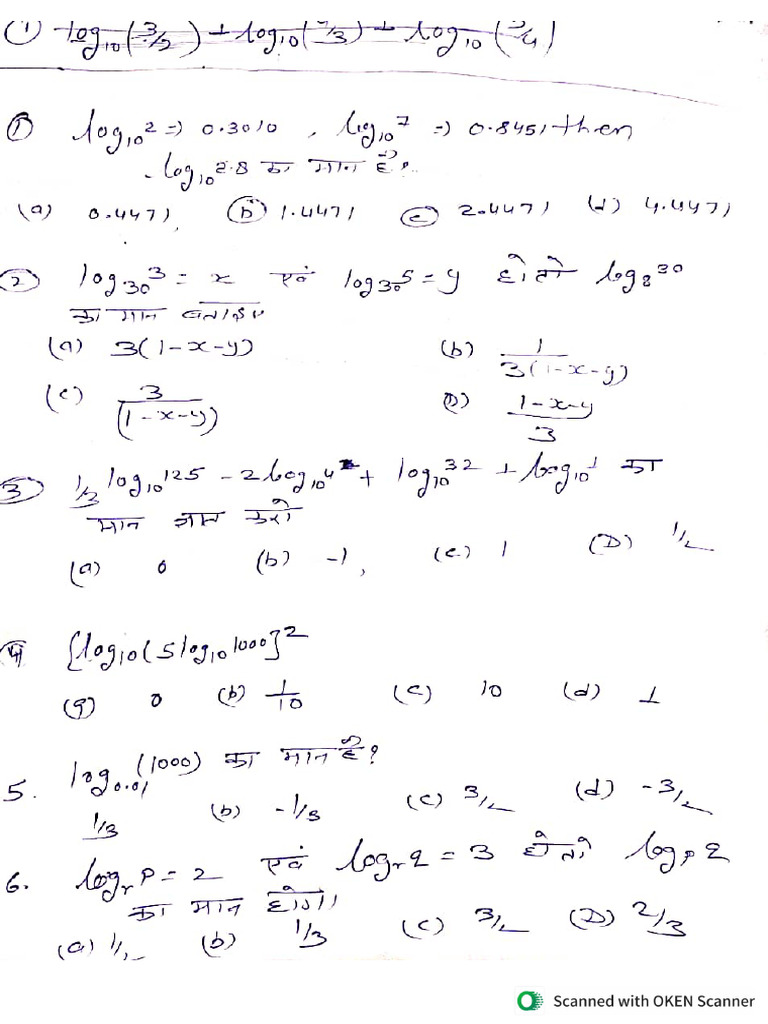 ① log₁₀(3/2) + log₁₀(4/3) + log₁₀(5/4)
① log₁₀2 => 0.3010 , log₁₀7 => 0.8451 then
log₁₀2.8 का मान है?
(a) 0.4471, (b) 1.4471 (c) 2.4471 (d) 4.4471
② log₃₀3 = x एवं log₃₀5 = y हो तो log₈30
का मान बताइए
(a) 3(1-x-y) (b) 1/3(1-x-y)
(c) 3/(1-x-y) (D) 1-x-y/3
③ 1/3 log₁₀125 - 2log₁₀4 + log₁₀32 + log₁₀1 का
मान ज्ञात करो
(a) 0 (b) -1, (c) 1 (D) 1/2
④ {log₁₀(5log₁₀1000]²
(a) 0 (b) 1/10 (c) 10 (d) 1
5. log₀.₀₁(1000) का मान है?
1/3 (b) -1/3 (c) 3/2 (d) -3/2
6. logᵣP = 2 एवं logᵣq = 3 हो तो logₚq
का मान होगा।
(a) 1/2 (b) 1/3 (c) 3/2 (D) 2/3
Scanned with OKEN Scanner